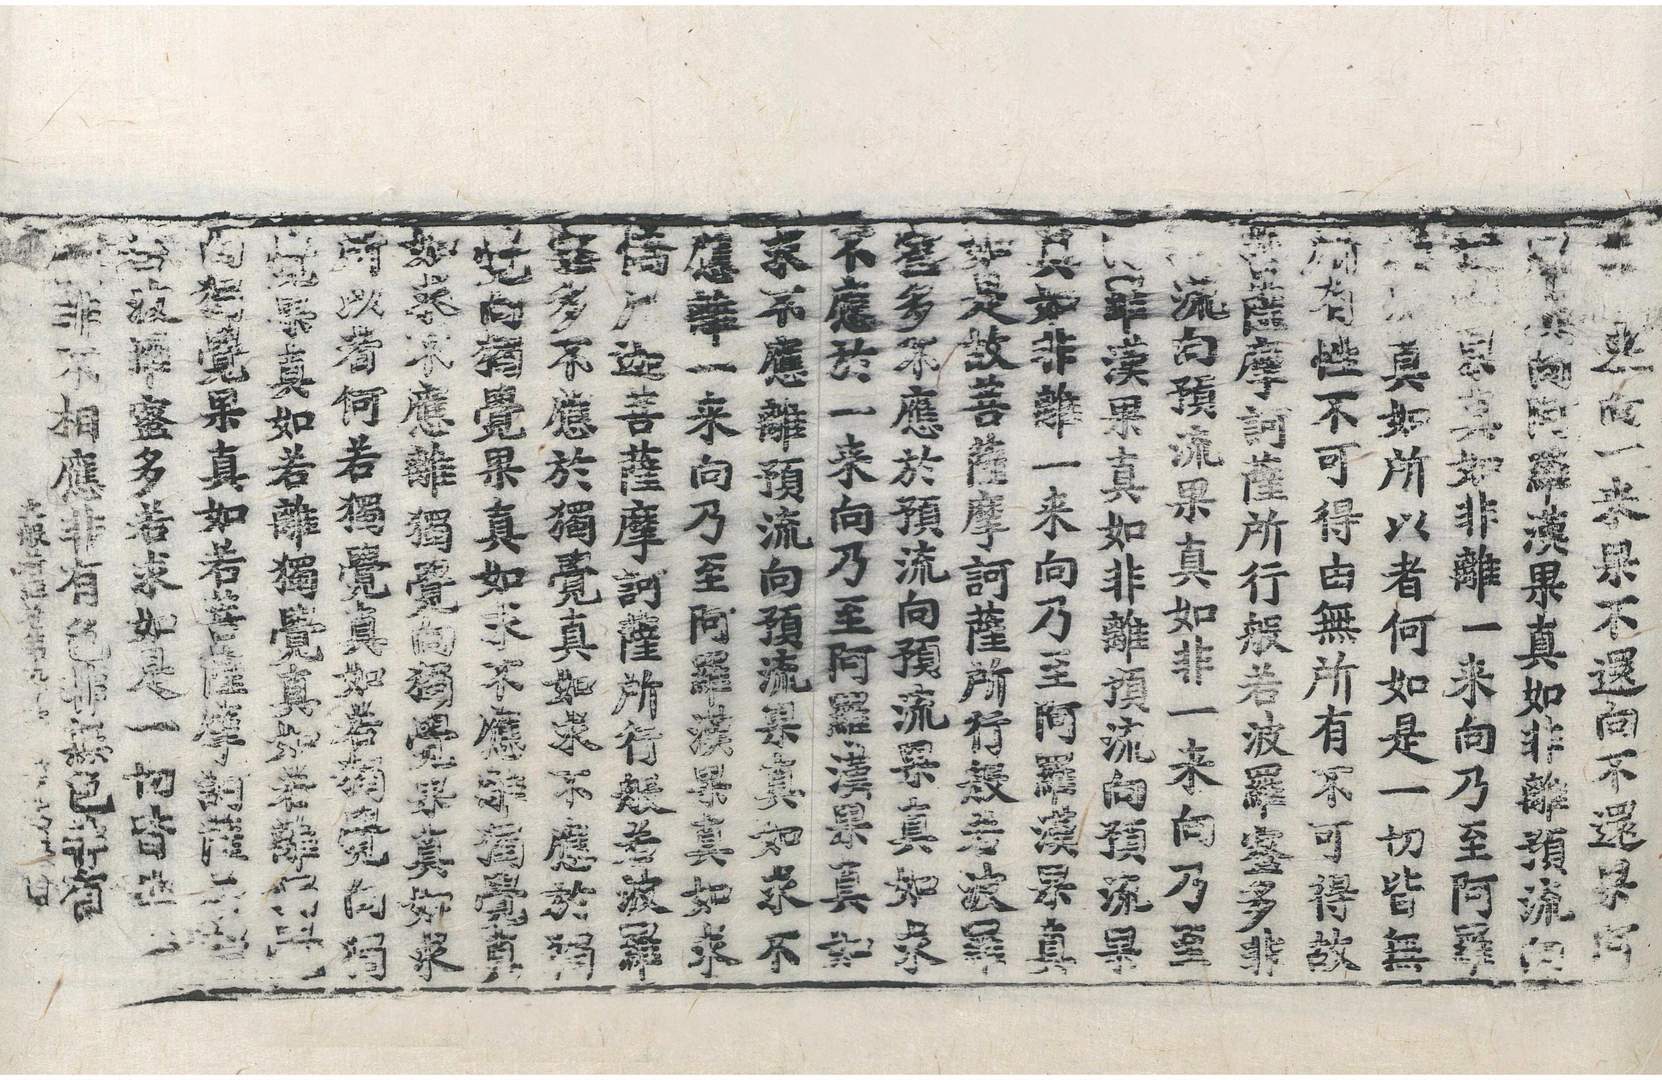 一来向一来果不還向不還果阿
羅漢向阿羅漢果真如非離預流向
預流果真如非離一来向乃至阿羅
漢果真如所以者何如是一切皆無
所有性不可得由無所有不可得故
菩薩摩訶薩所行般若波羅蜜多非
預流向預流果真如非一来向乃至
阿羅漢果真如非離預流向預流果
真如非離一来向乃至阿羅漢果真
如是故菩薩摩訶薩所行般若波羅
蜜多不應於預流向預流果真如求
不應於一来向乃至阿羅漢果真如
求不應離預流向預流果真如求不
應離一来向乃至阿羅漢果真如求
憍尸迦菩薩摩訶薩所行般若波羅
蜜多不應於獨覺真如求不應於獨
覺向獨覺果真如求不應離獨覺真
如求不應離獨覺向獨覺果真如求
所以者何若獨覺真如若獨覺向獨
覺果真如若離獨覺真如若離獨覺
向獨覺果真如若菩薩摩訶薩
若波羅蜜多若求如是一切皆
非不相應非有色非無色非有